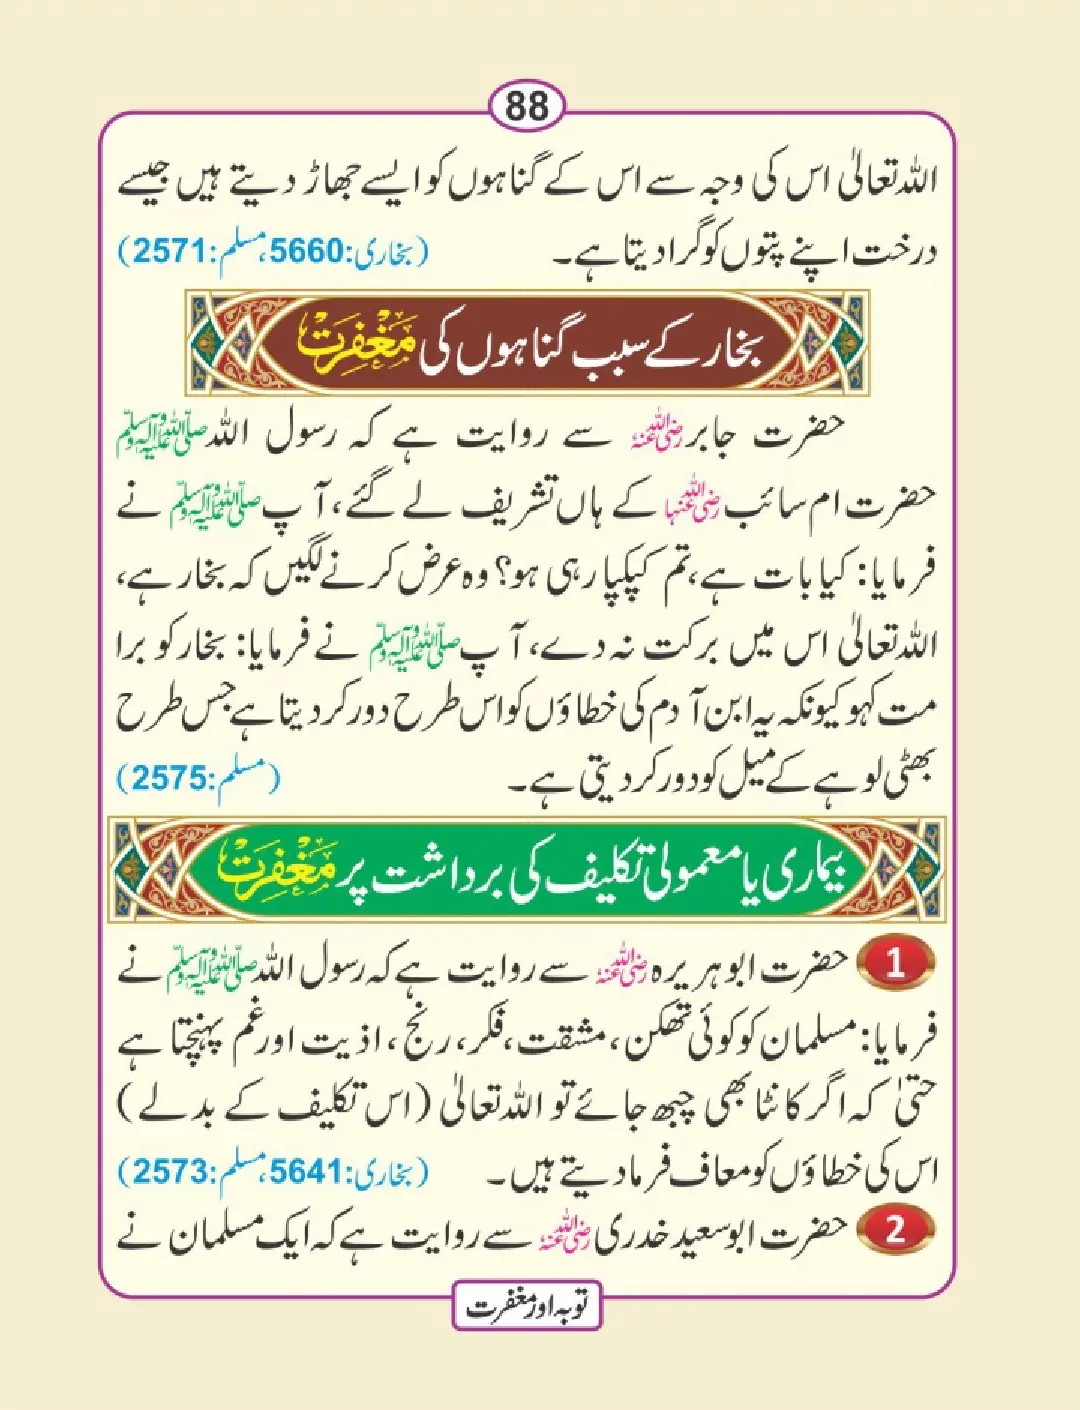 88
اللہ تعالیٰ اس کی وجہ سے اس کے گناہوں کو ایسے جھاڑ دیتے ہیں جیسے
درخت اپنے پتوں کو گرا دیتا ہے۔ (بخاری:5660، مسلم:2571)
بخار کے سبب گناہوں کی مَغْفِرَتْ
حضرت جابر رضی اللہ عنہ سے روایت ہے کہ رسول اللہ صلی اللہ علیہ وآلہ وسلم
حضرت ام سائب رضی اللہ عنہا کے ہاں تشریف لے گئے، آپ صلی اللہ علیہ وآلہ وسلم نے
فرمایا: کیا بات ہے، تم کپکپا رہی ہو؟ وہ عرض کرنے لگیں کہ بخار ہے،
اللہ تعالیٰ اس میں برکت نہ دے، آپ صلی اللہ علیہ وآلہ وسلم نے فرمایا: بخار کو برا
مت کہو کیونکہ یہ ابن آدم کی خطاؤں کو اس طرح دور کر دیتا ہے جس طرح
بھٹی لوہے کے میل کو دور کر دیتی ہے۔ (مسلم:2575)
بیماری یا معمولی تکلیف کی برداشت پر مَغْفِرَتْ
1 حضرت ابو ہریرہ رضی اللہ عنہ سے روایت ہے کہ رسول اللہ صلی اللہ علیہ وآلہ وسلم نے
فرمایا: مسلمان کو کوئی تھکن، مشقت، فکر، رنج، اذیت اور غم پہنچتا ہے
حتیٰ کہ اگر کانٹا بھی چبھ جائے تو اللہ تعالیٰ (اس تکلیف کے بدلے)
اس کی خطاؤں کو معاف فرما دیتے ہیں۔ (بخاری:5641، مسلم:2573)
2 حضرت ابوسعید خدری رضی اللہ عنہ سے روایت ہے کہ ایک مسلمان نے
توبہ اور مغفرت